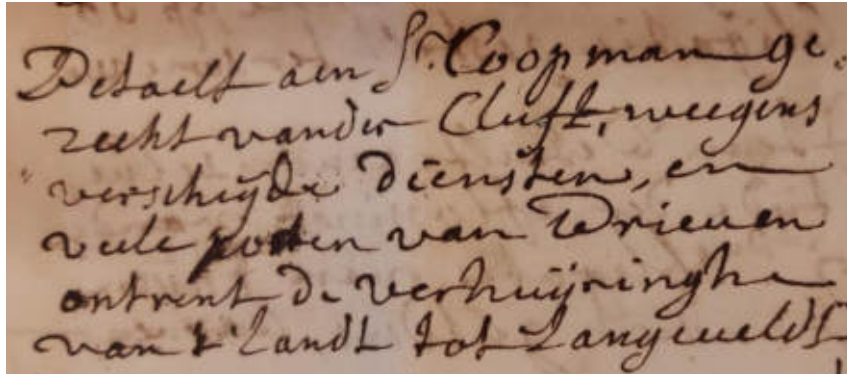 Betaelt aen Sr. Coopman ge,
recht vander Cluft, weegens
verschijde diensten, en
veele porten van Brieuen
ontrent de verhuijringhe
van t'Landt tot Langeueldt